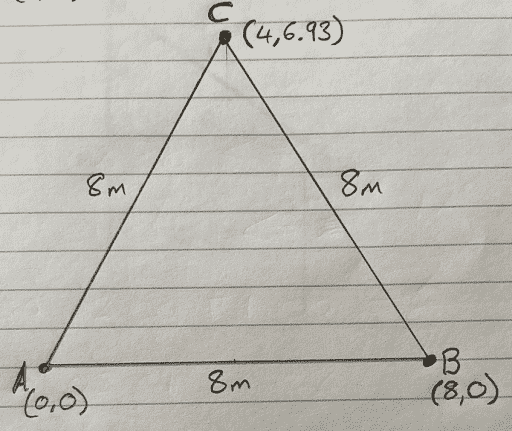 C
(4,6.93)
8m
8m
A
B
(0,0)
8m
(8,0)